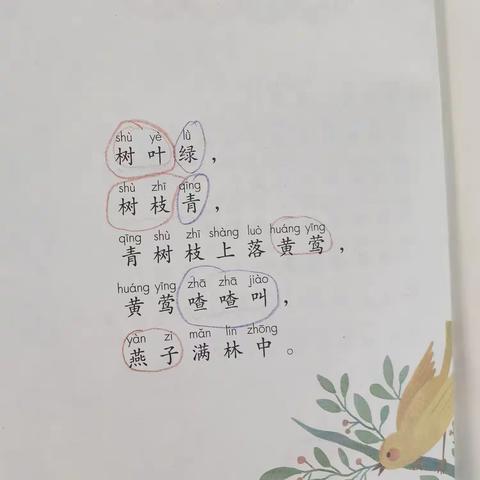 shù yè lǜ
树叶绿，
shù zhī qīng
树枝青，
qīng shù zhī shàng luò huáng yīng
青树枝上落黄莺，
huáng yīng zhā zhā jiào
黄莺喳喳叫，
yàn zi mǎn lín zhōng
燕子满林中。